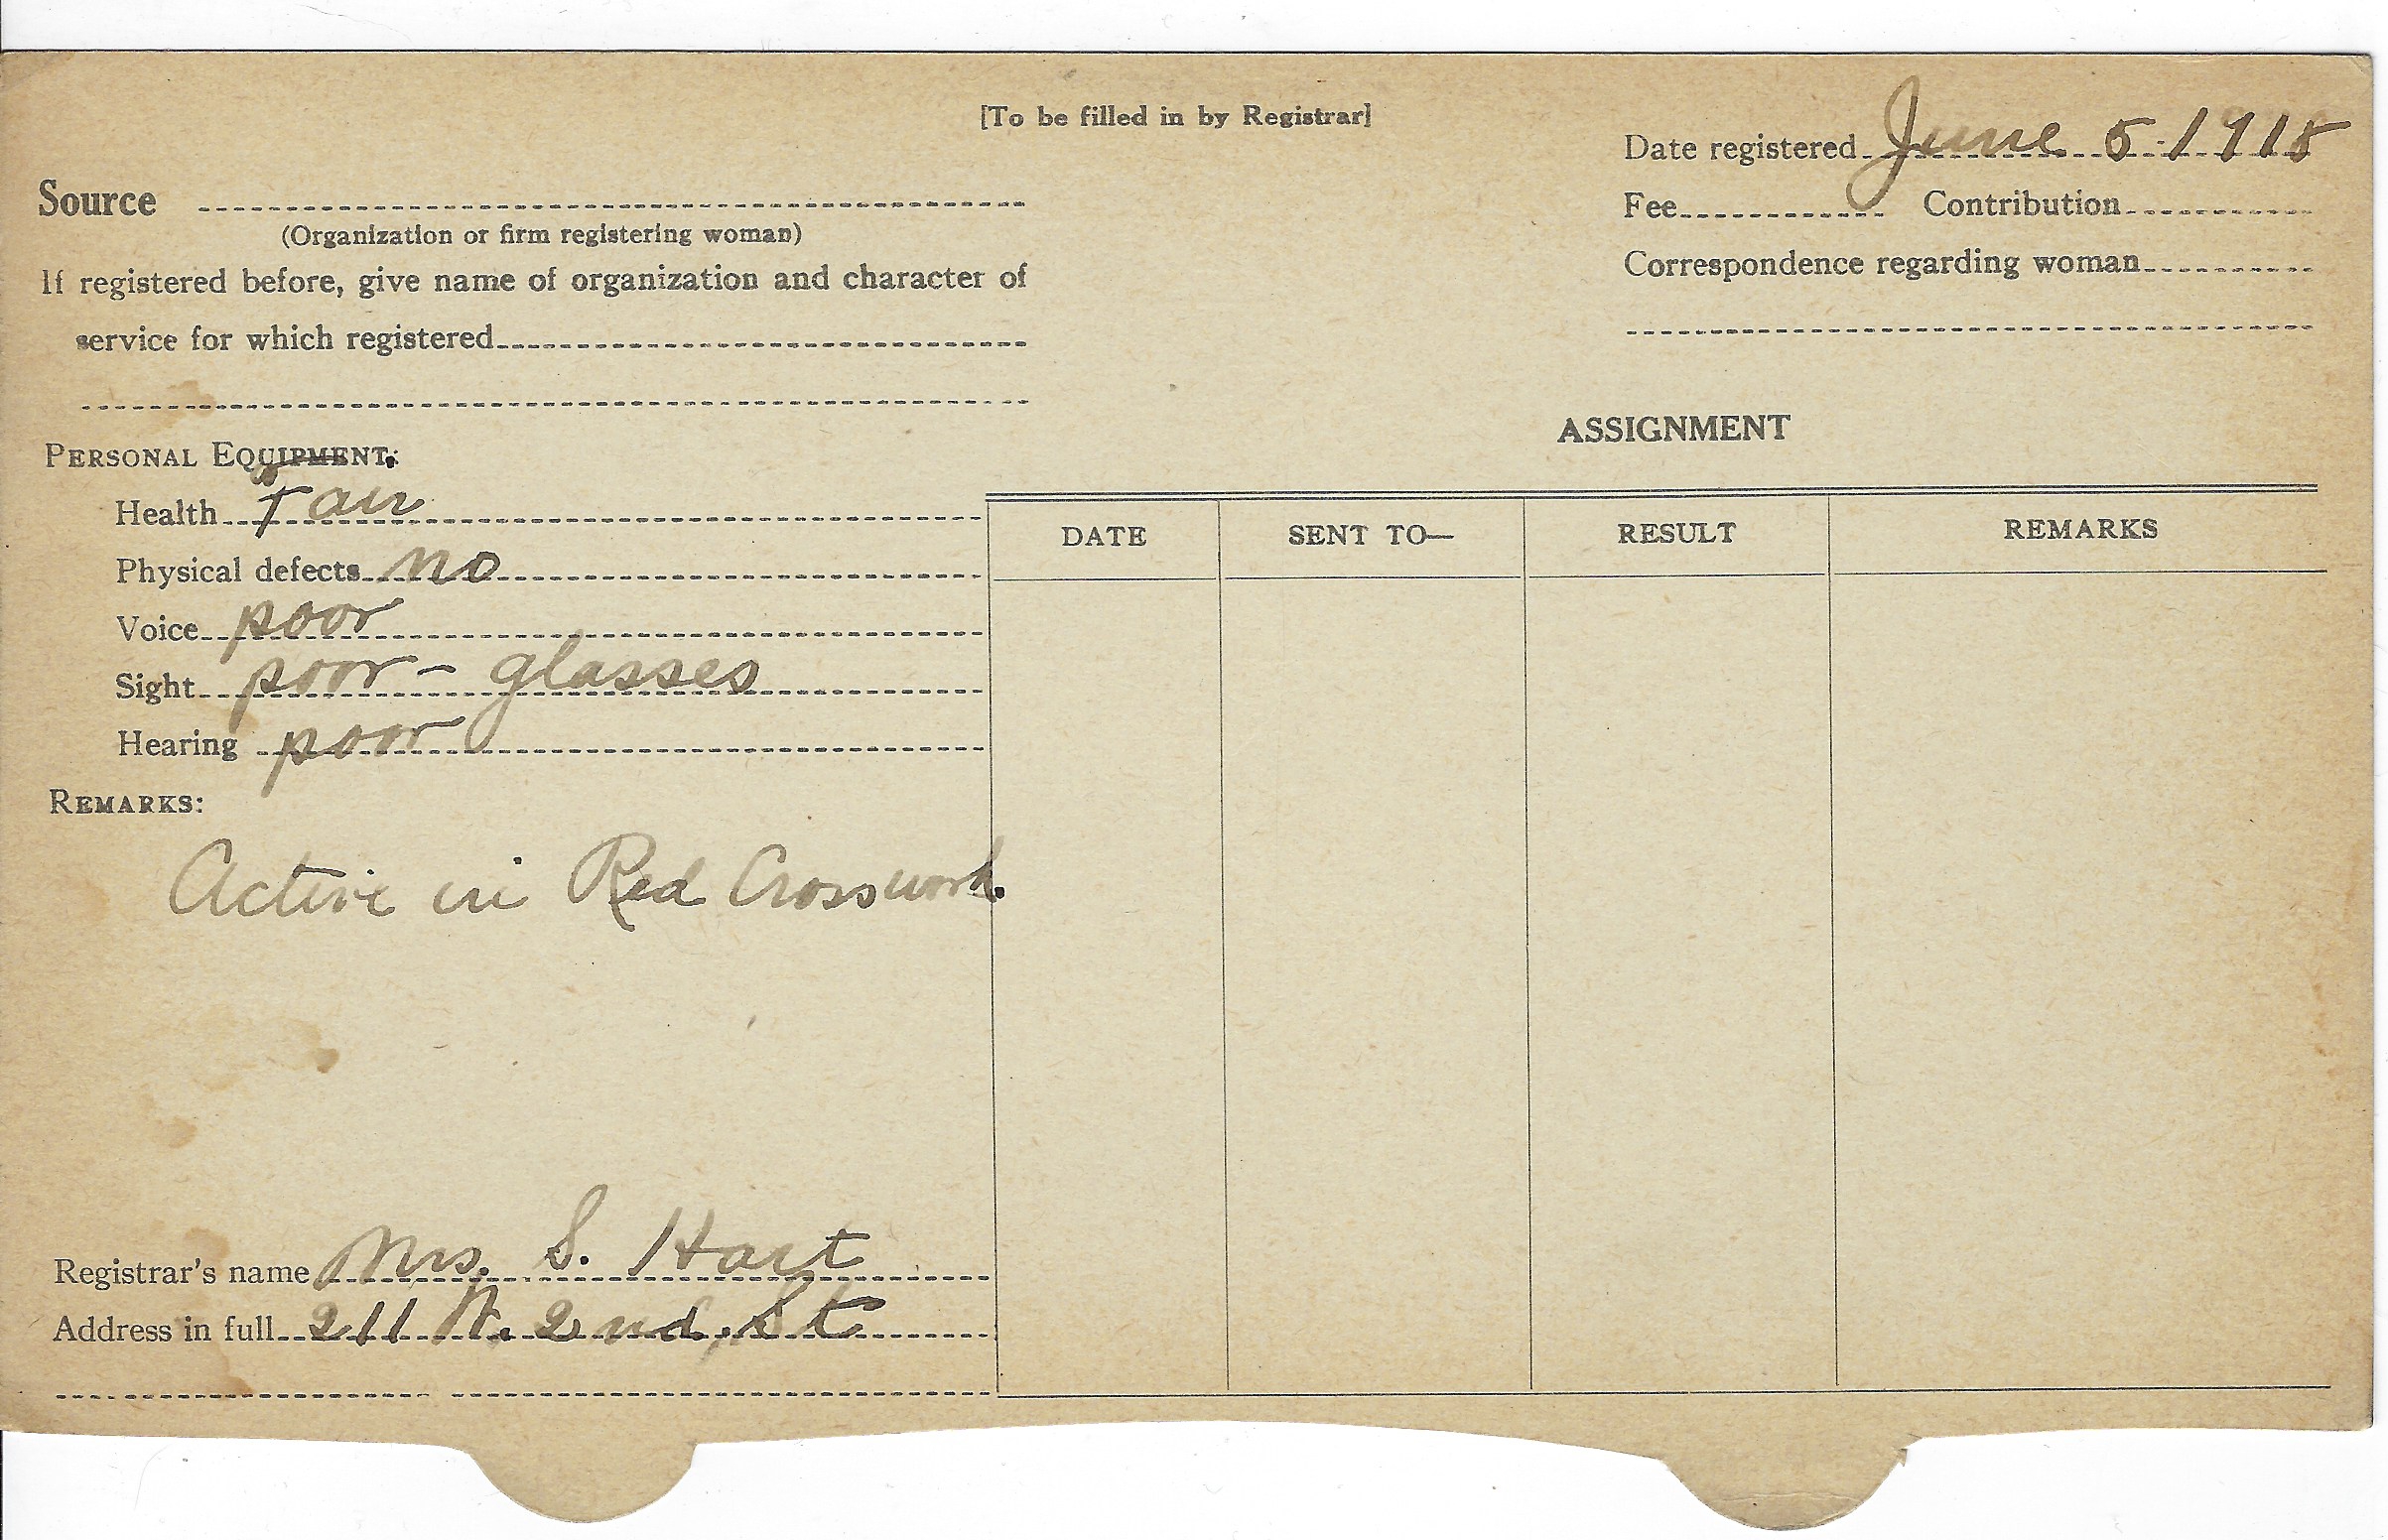 [To be filled in by Registrar]
Date registered June 5 1918
Source
Fee Contribution
(Organization or firm registering woman)
Correspondence regarding woman
If registered before, give name of organization and character of
service for which registered
ASSIGNMENT
PERSONAL EQUIPMENT:
Health Fair
Physical defects no
Voice poor
Sight poor - glasses
Hearing poor
DATE SENT TO— RESULT REMARKS
REMARKS:
Active in Red Cross work.
Registrar's name Mrs. S. Hart
Address in full 211 N. 2nd, St